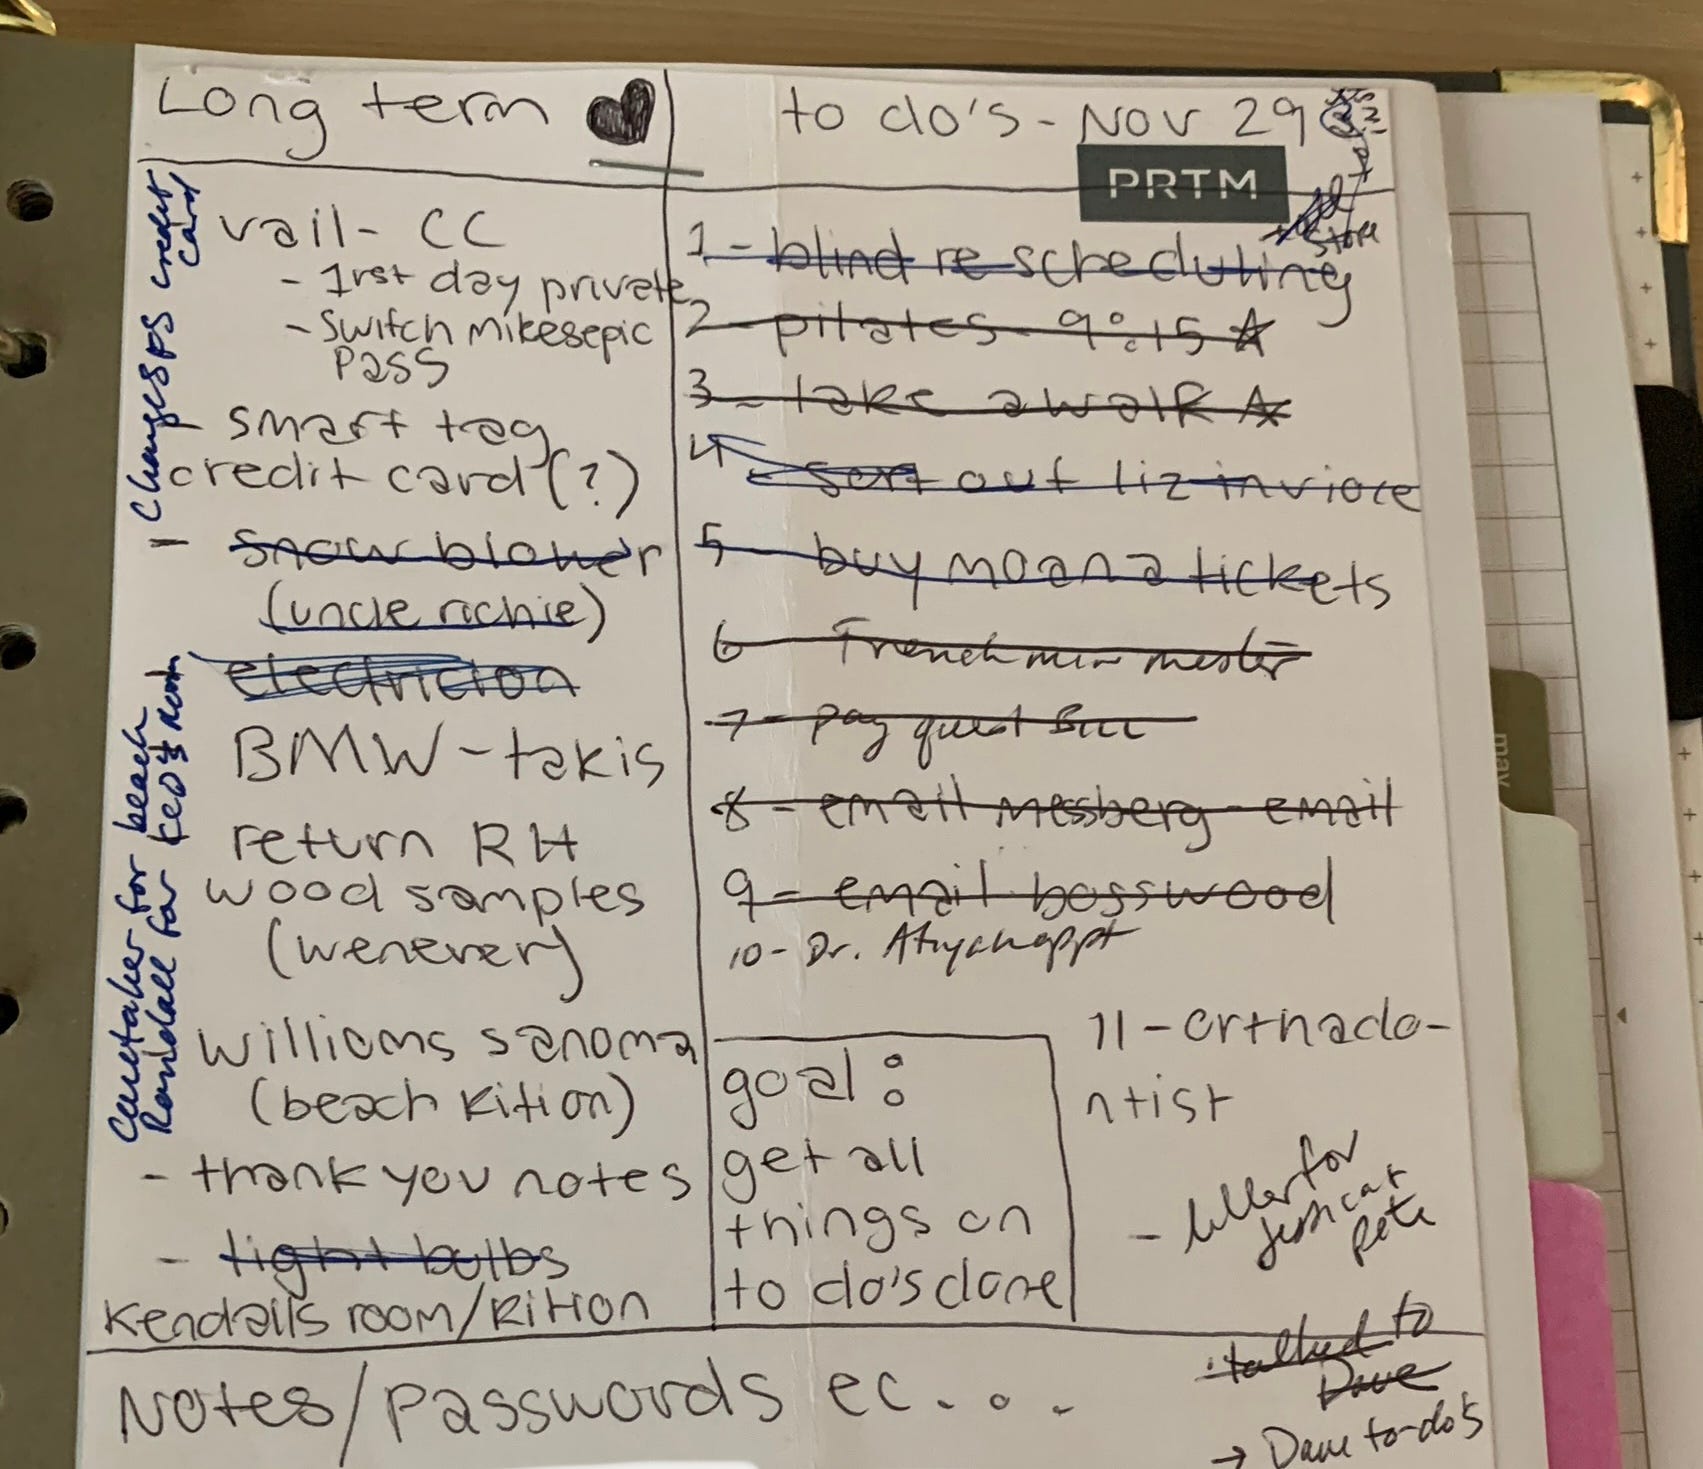 Long term
to do's - Nov 29
PRTM
store
changes PS credit
card
vail - CC
- 1rst day private
- switch mikesepic
pass
- smart tag
credit card (?)
- snow blower
(uncle richie)
electricion
BMW - takis
return RH
wood samples
(wenever)
williams sanoma
(beach kition)
- thank you notes
- light bulbs
Kendalls room/kition
caretaker for beach
Randall for
1 - blind rescheduling
2 - pilates - 9:15
3 - take a walk
4 - sort out liz invioce
5 - buy moana tickets
6 - French
7 - pay quest bill
8 - email messberg - email
9 - email bosswood
10 - Dr. appt
11 - orthado-
ntist
goal:
get all
things on
to do's done
- letter for
Jessica +
Pete
talked to
Dave
→ Dave to-do's
Notes/passwords ec...
may